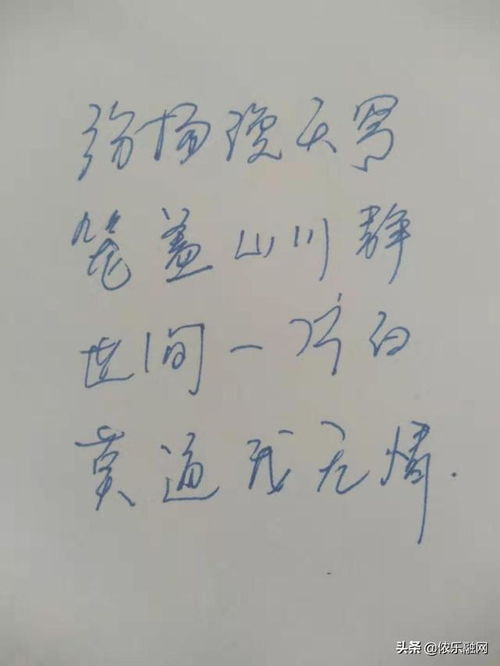 纷扬漫天雪
笼盖山川静
世间一片白
莫道我无情.
头条 @依乐融网